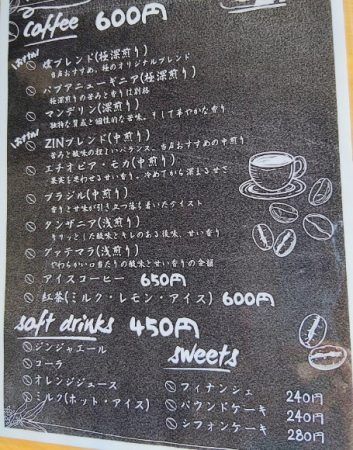 Coffee 600円
おすすめ! 燻ブレンド(極深煎り)
当店おすすめ。極のオリジナルブレンド
パプアニューギニア(極深煎り)
極深煎りの苦みと香りは別格
マンデリン(深煎り)
独特な質感と個性的な苦味。そして華やかな香り
おすすめ! ZINブレンド(中煎り)
苦みと酸味の程よいバランス。当店おすすめの中煎り
エチオピア・モカ(中煎り)
果実を思わせる甘い香り。冷めてから深まる甘さ
ブラジル(中煎り)
香りと甘味が引き立つ落ち着いたテイスト
タンザニア(浅煎り)
キリッとした酸味とキレのある後味、甘い香り
グァテマラ(浅煎り)
やわらかい口当たりの酸味と甘い香りの余韻
アイスコーヒー 650円
紅茶(ミルク・レモン・アイス) 600円
soft drinks 450円
ジンジャエール
コーラ
オレンジジュース
ミルク(ホット・アイス)
sweets
フィナンシェ 240円
パウンドケーキ 240円
シフォンケーキ 280円